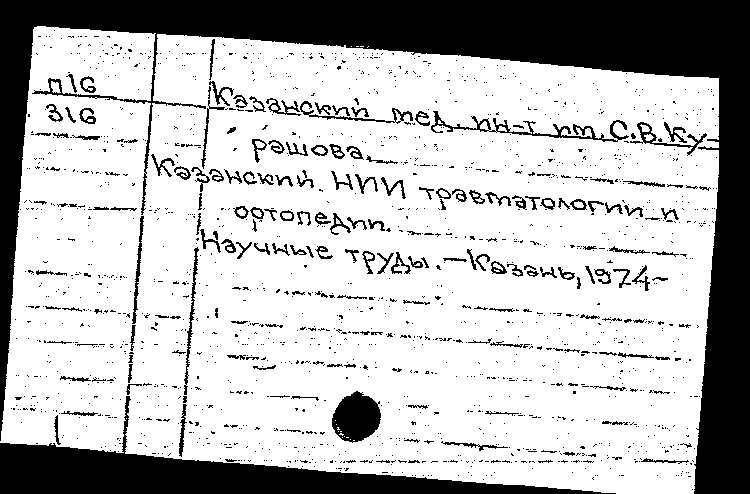 п16
316
Казанский мед. ин-т им. С.В. Ку-
рашова.
Казанский НИИ травматологии и
ортопедии.
Научные труды. – Казань, 1974–